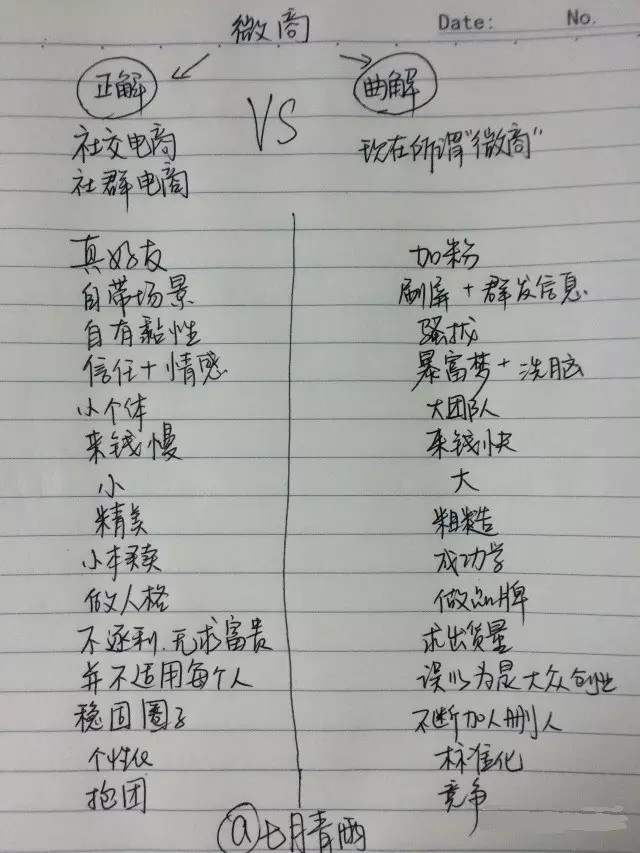 微商
Date: No.
正解 曲解
VS
社交电商 现在所谓"微商"
社群电商
真好友 加粉
自带场景 刷屏+群发信息
自有黏性 骚扰
信任+情感 暴富梦+洗脑
小个体 大团队
来钱慢 来钱快
小 大
精美 粗糙
小本买卖 成功学
做人格 做品牌
不逐利.无求富贵 求出货量
并不适用每个人 误以为是大众创业
稳固圈子 不断加人删人
个性化 标准化
抱团 竞争
@七月青雨